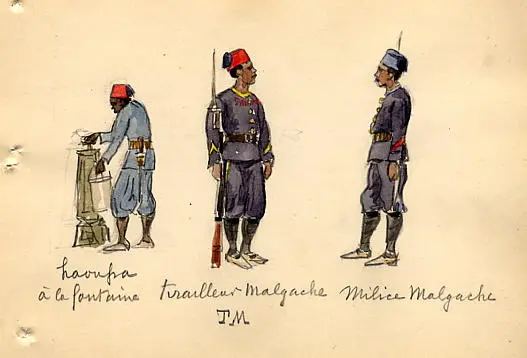 haoussa
à la fontaine
Tirailleur Malgache
TM
Milice Malgache